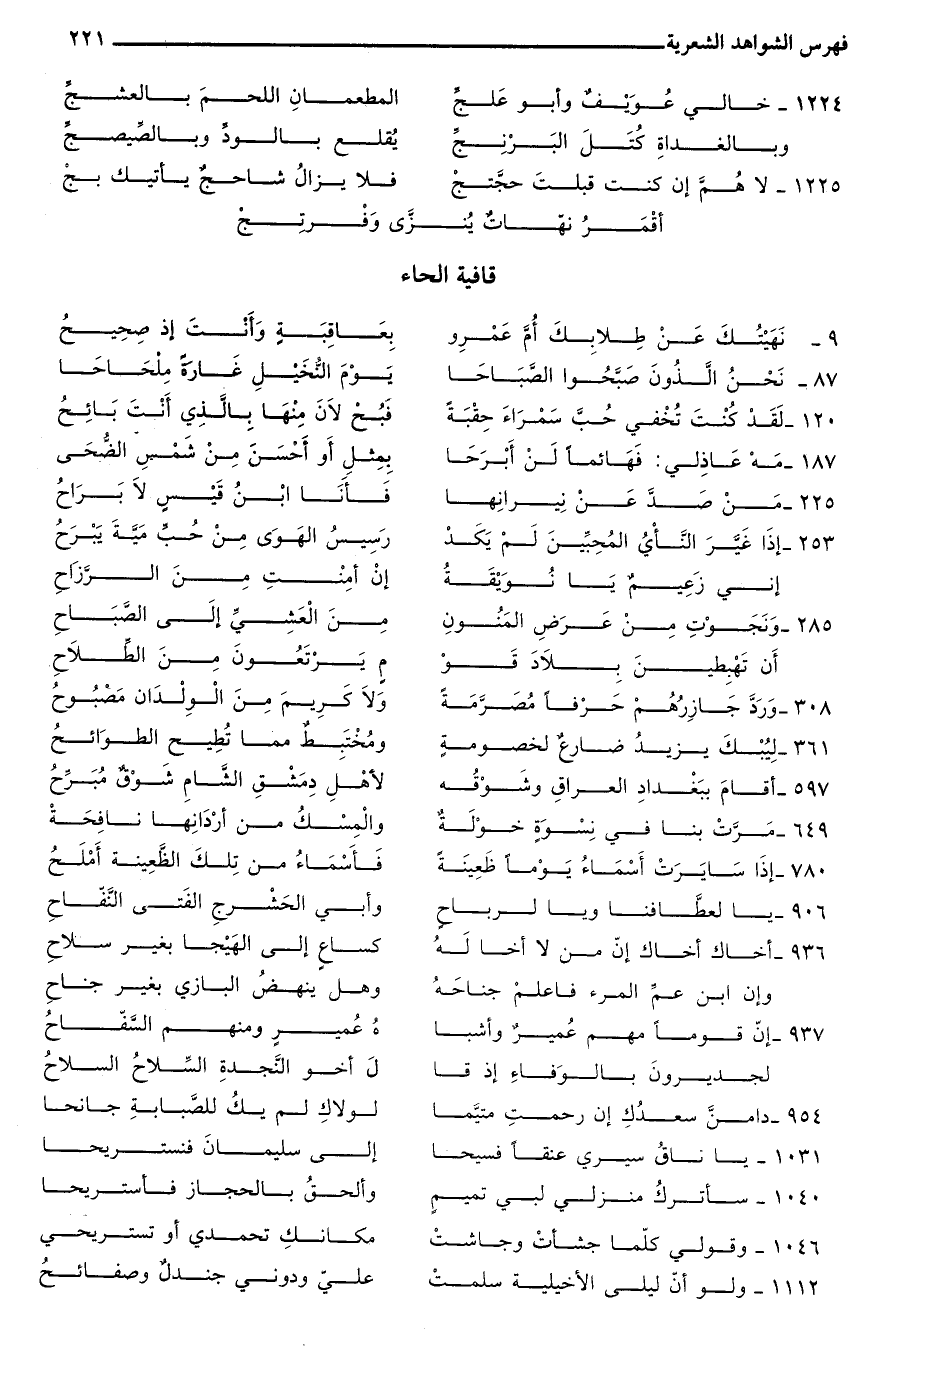 فهرس الشواهد الشعرية ٢٢١
١٢٢٤ ـ خالي عُوَيْفٌ وأبو عَلجِّ المطعمانِ اللحمَ بالعشجِّ
وبالغداةِ كُتَلَ البَرْنِجِّ يُقلع بالودِّ وبالصِّيصجِّ
١٢٢٥ ـ لا هُمَّ إن كنت قبلتَ حجَّتجْ فلا يزالُ شاحجٌ يأتيك بجْ
أقْمَرُ نهّاتٌ يُنَزَّى وَفْرتِجْ
قافية الحاء
٩ ـ نَهَيْتُكَ عَنْ طِلابِكَ أُمَّ عَمْرٍو بِعَاقِبَةٍ وَأَنْتَ إذ صَحِيحُ
٨٧ـ نَحْنُ الَّذُونَ صَبَّحُوا الصَّبَاحَا يَوْمَ النُّخَيْلِ غَارَةً مِلْحَاحَا
١٢٠ ـلَقَدْ كُنْتَ تُخْفي حُبَّ سَمْرَاءَ حِقْبَةً فَبُحْ لاَنَ مِنْهَا بِالَّذِي أَنْتَ بَائِحُ
١٨٧ ـمَهْ عَاذِلي: فَهَائماً لَنْ أَبْرَحَا بِمِثْلِ أَو أَحْسَنَ مِنْ شَمْسِ الضُّحَى
٢٢٥ ـمَنْ صَدَّ عَنْ نِيرانِها فَأَنَا ابْنُ قَيْسٍ لاَ بَرَاحُ
٢٥٣ ـإذَا غَيَّرَ النَّأْيُ المُحِبِّينَ لَمْ يَكَدْ رَسِيسُ الهَوَى مِنْ حُبِّ مَيَّةَ يَبْرَحُ
إني زَعِيمٌ يَا نُوَيْقَةُ إنْ أمِنْتِ مِنَ الرَّزَاحِ
٢٨٥ ـوَنَجَوْتِ مِنْ عَرَضِ المَنُونِ مِنَ الْعَشِيِّ إلَى الصَّبَاحِ
أن تَهْبِطِينَ بِلاَدَ قَوْ مٍ يَرْتَعُونَ مِنَ الطِّلاَحِ
٣٠٨ ـوَرَدَّ جَازِرُهُمْ حَرْفاً مُصَرَّمَةً وَلاَ كَرِيمَ مِنَ الْوِلْدَانِ مَصْبُوحُ
٣٦١ ـلِيُبْكَ يزيدُ ضارعٌ لخصومةٍ ومُخْتَبِطٌ مما تُطِيح الطوائحُ
٥٩٧ ـأقامَ ببَغْداد العراقِ وشَوْقُه لأهْلِ دِمَشْقِ الشَّام شَوْقٌ مُبَرِّحُ
٦٤٩ ـمَرَّتْ بنا في نِسْوَةٍ خولَةٌ والمِسْكُ من أرْدَانِها نافحَةْ
٧٨٠ ـإذَا سَايَرَتْ أَسْمَاءُ يَوْماً ظَعِينَةً فَأَسْمَاءُ من تِلكَ الظَّعِينة أَمْلَحُ
٩٠٦ ـيا لعطَّافنا ويا لرباحٍ وأبي الحَشْرجِ الفَتى النَّفّاحِ
٩٣٦ ـأخاك أخاك إنّ من لا أخا لَهُ كساعٍ إلى الهَيْجا بغير سلاحِ
وإن ابن عمِّ المرء فاعلمْ جناحَهُ وهل ينهضُ البازي بغير جناحِ
٩٣٧ ـإنّ قوماً مهم عُميرٌ وأشبا هُ عُميرٍ ومنهم السَّفّاحُ
لجديرونَ بالوَفاءِ إذ قا لَ أخو النَّجدةِ السِّلاحُ السلاحُ
٩٥٤ ـدامنَّ سعدُكِ إن رحمتِ متيَّما لولاكِ لم يكُ للصَّبابةِ جانحا
١٠٣١ ـ يا ناقُ سيري عنقاً فسيحا إلى سليمانَ فنستريحا
١٠٤٠ ـ سأتركُ منزلي لبي تميمٍ وألحقُ بالحجاز فأستريحا
١٠٤٦ ـ وقولي كلّما جشأتْ وجاشتْ مكانكِ تحمدي أو تستريحي
١١١٢ ـ ولو أنّ ليلى الأخيلية سلمتْ عليّ ودوني جندلٌ وصفائحُ